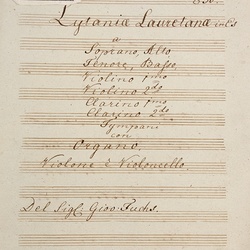 Lytaniæ Lauretanæ in C
a
Soprano, Alto
Tenore, Basso
Violino 1mo
Violino 2do
Clarino 1mo
Clarino 2do
Tympani
con
Organo,
Violone è Violoncello.
Del Sigl: Giov: Fuchs.